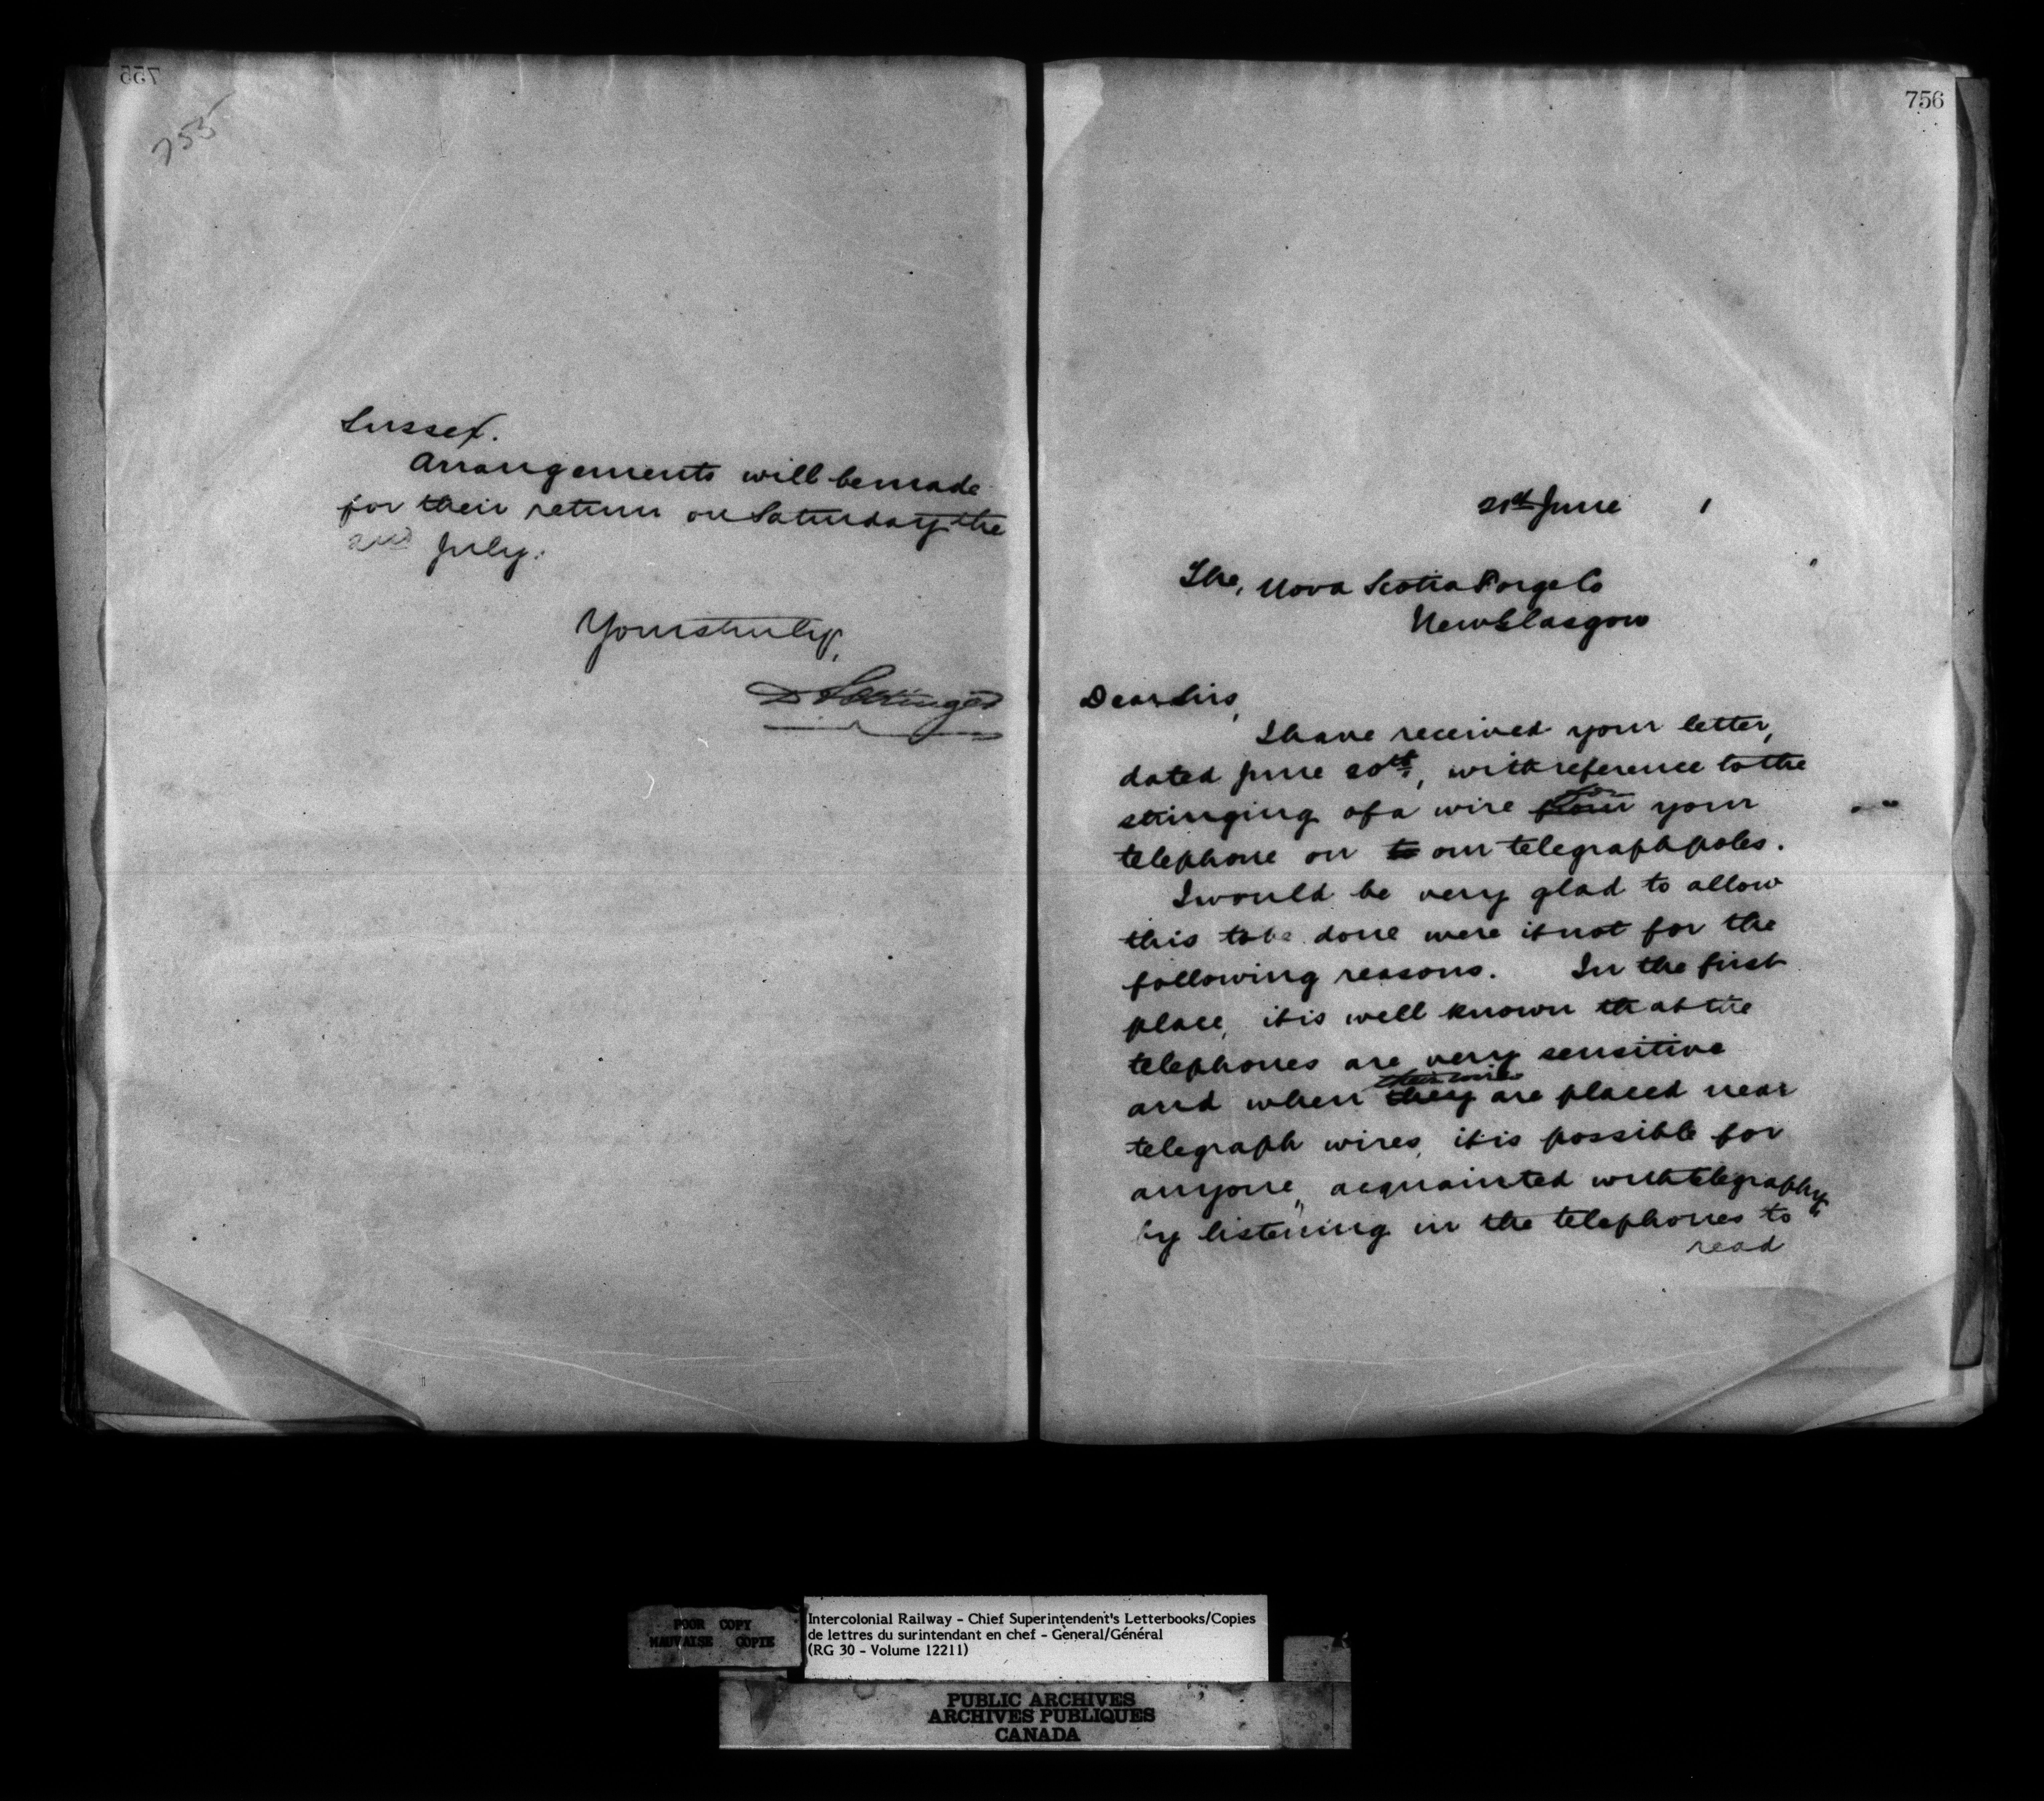 755
755
Sussex.
Arrangements will be made
for their return on Saturday the
2nd July.
Yours truly,
D Pottinger
756
21st June 1
The, Nova Scotia Forge Co
New Glasgow
Dear Sirs,
I have received your letter,
dated June 20th, with reference to the
stringing of a wire from for your
telephone on to our telegraph poles.
I would be very glad to allow
this to be done were it not for the
following reasons. In the first
place, it is well known that the
telephones are very sensitive
and when they their wires are placed near
telegraph wires, it is possible for
anyone, acquainted with telegraphy,
by listening in the telephones to
read
POOR COPY
MAUVAISE COPIE
Intercolonial Railway - Chief Superintendent's Letterbooks/Copies
de lettres du surintendant en chef - General/Général
(RG 30 - Volume 12211)
PUBLIC ARCHIVES
ARCHIVES PUBLIQUES
CANADA